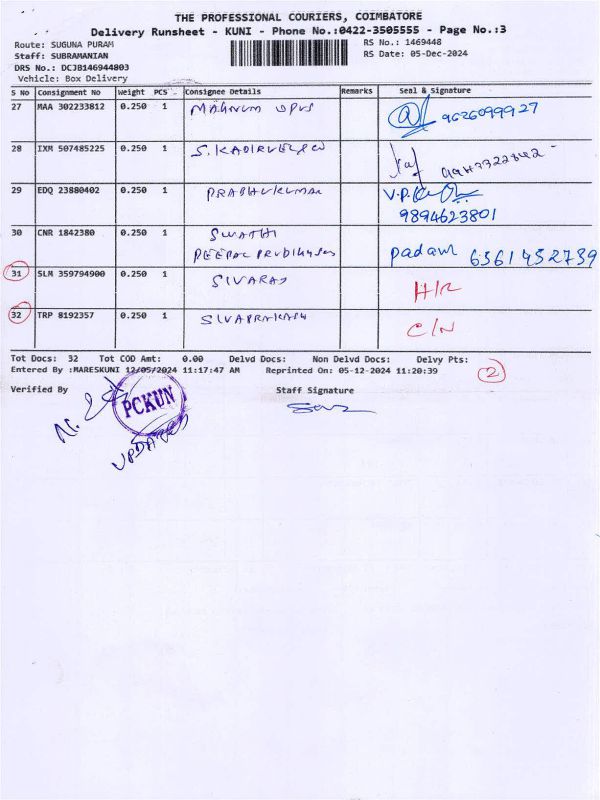 THE PROFESSIONAL COURIERS, COIMBATORE
Delivery Runsheet - KUNI - Phone No.:0422-3505555 - Page No.:3
Route: SUGUNA PURAM
RS No.: 1469448
Staff: SUBRAMANIAN
RS Date: 05-Dec-2024
DRS No.: DCJB146944803
Vehicle: Box Delivery
S No Consignment No Weight PCS Consignee Details Remarks Seal & Signature
27 MAA 302233812 0.250 1 MAGNUM OPUS 9626099927
28 IXM 507485225 0.250 1 S. KADIRVELAN
29 EDQ 23880402 0.250 1 PRABHUKUMAR V.P.
9894623801
30 CNR 1842380 0.250 1 SWATHI
DEEPAK Padam 6361452739
31 SLM 359794900 0.250 1 SIVARAJ H/R
32 TRP 8192357 0.250 1 SIVAPRAKASH C/N
Tot Docs: 32 Tot COD Amt: 0.00 Delvd Docs: Non Delvd Docs: Delvy Pts:
Entered By :MARESKUNI 12/05/2024 11:17:47 AM Reprinted On: 05-12-2024 11:20:39 2
Verified By Staff Signature
PCKUN
UPDATED